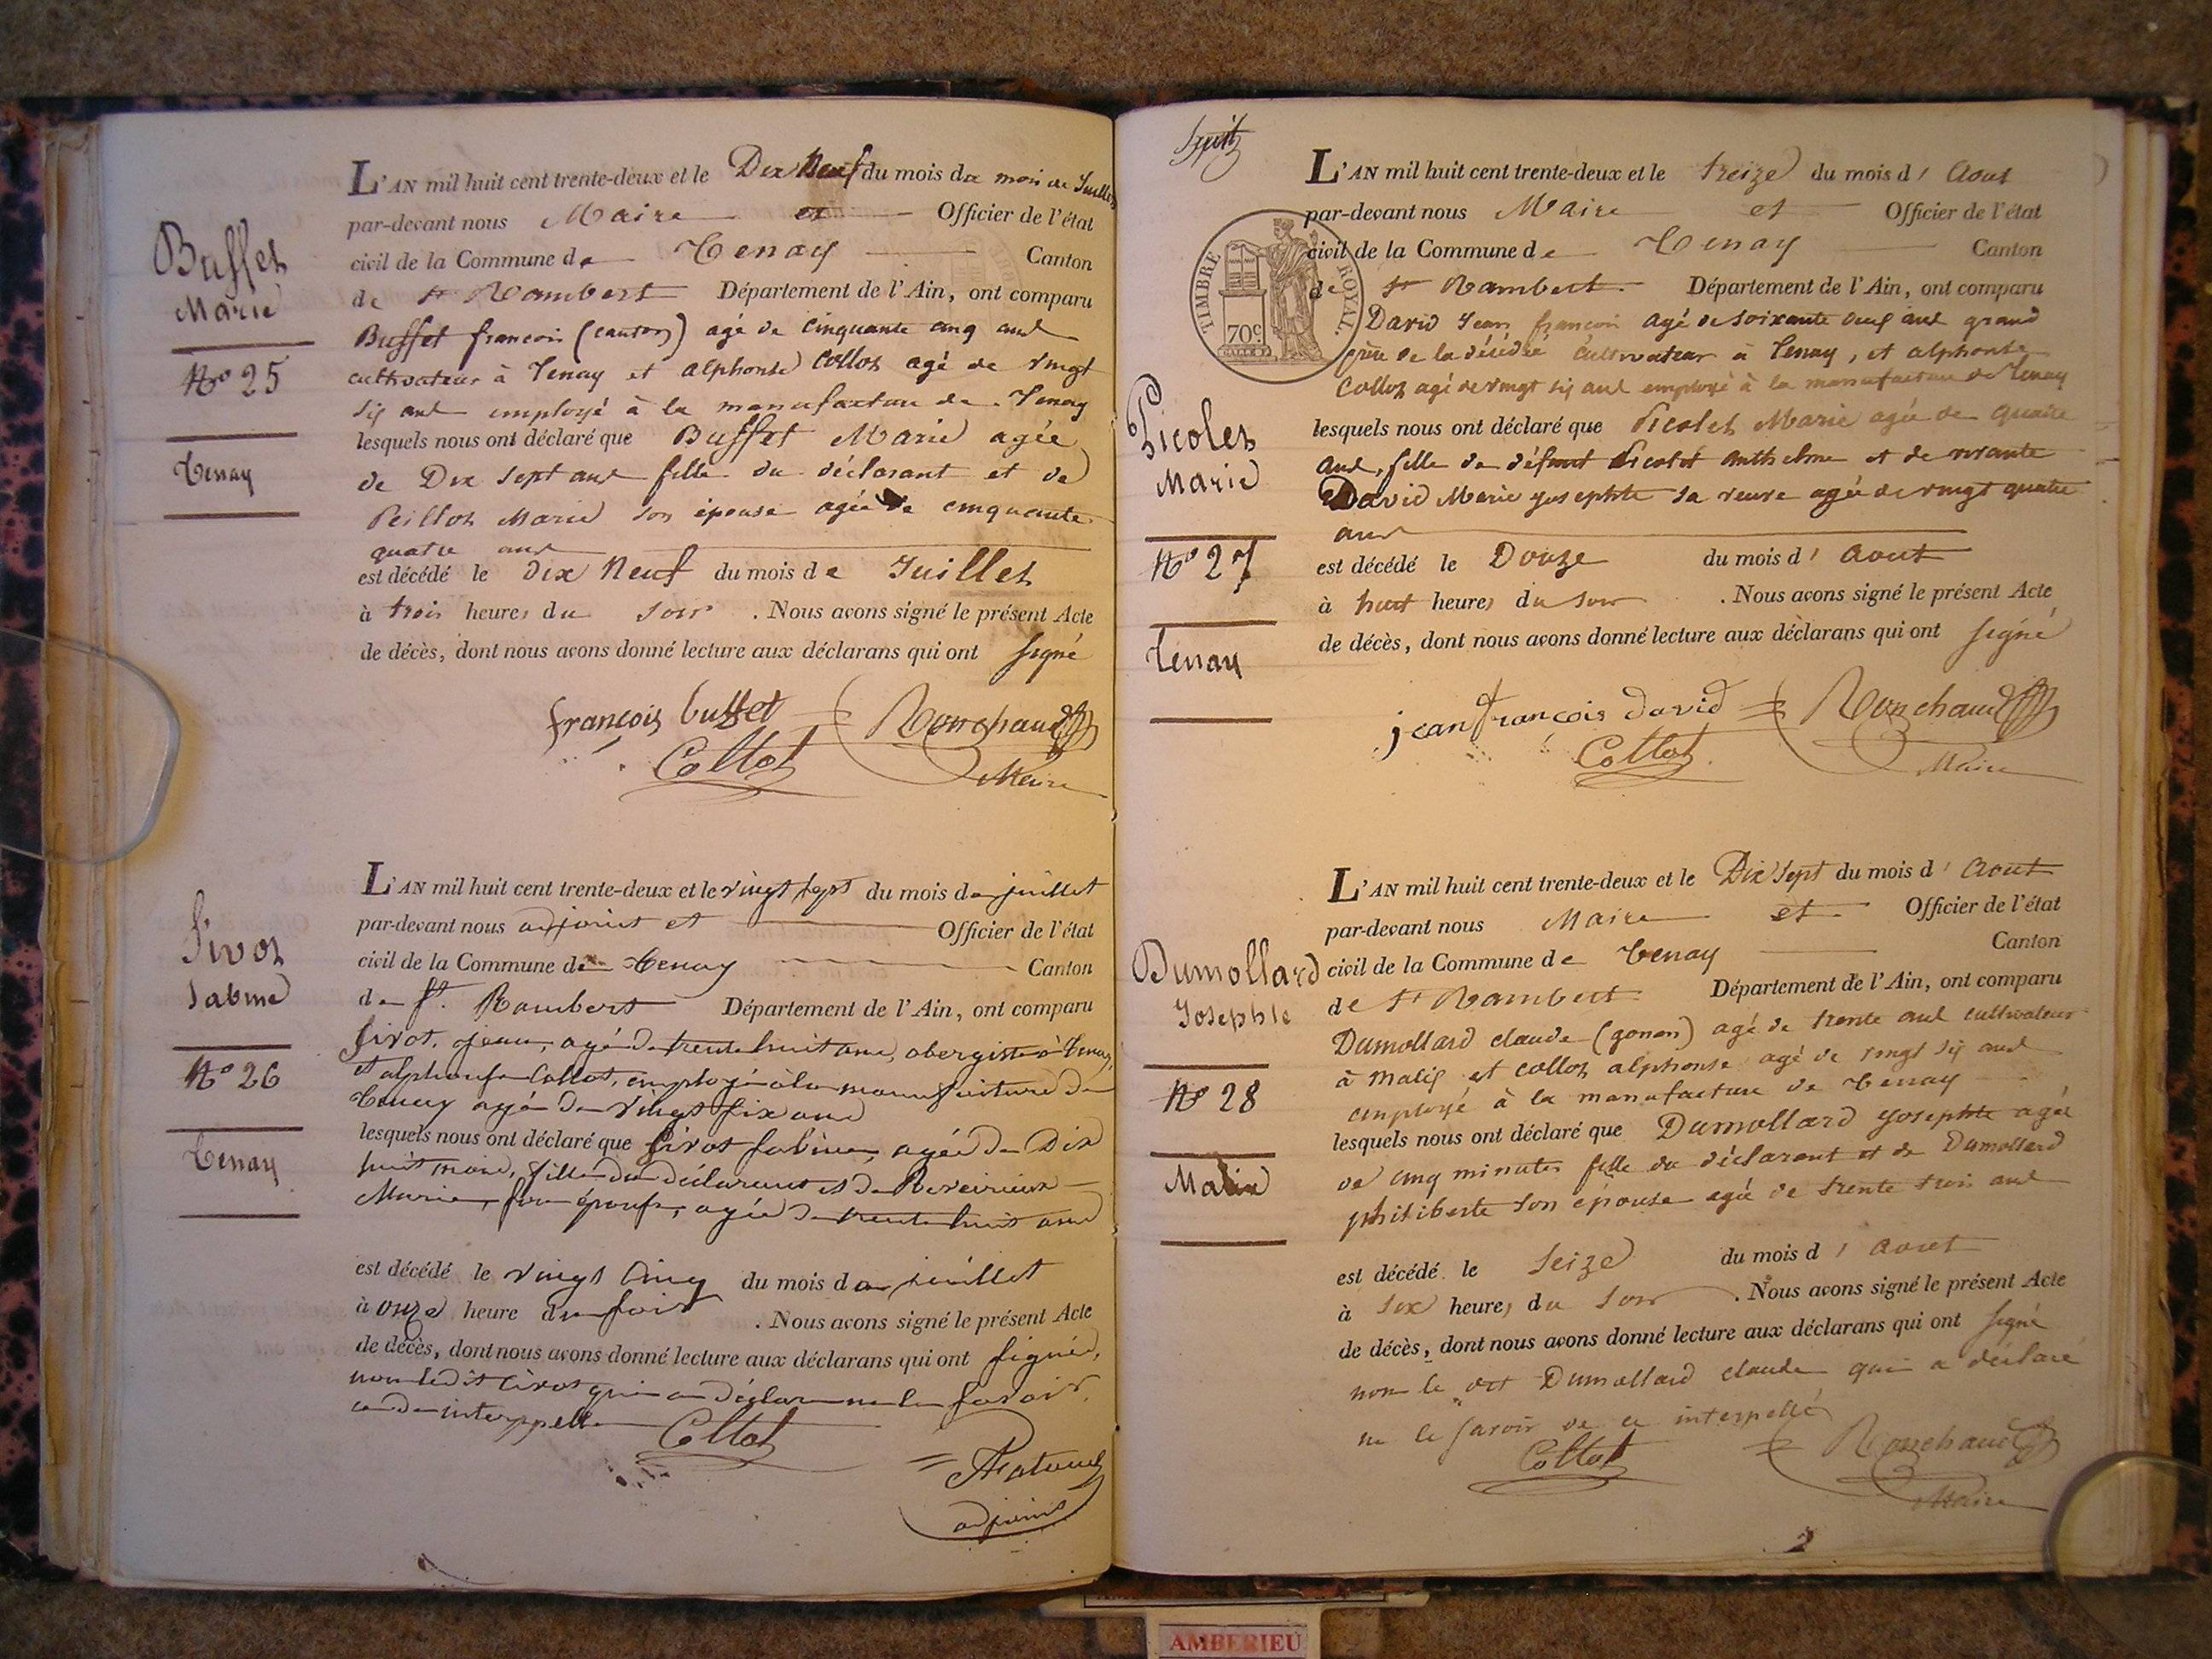 Buffet
Marie
No 25
Tenay
L'AN mil huit cent trente-deux et le Dix Neuf du mois de mois de Juillet
par-devant nous Maire et Officier de l'état
civil de la Commune de Tenay Canton
de St Rambert Département de l'Ain, ont comparu
Buffet francois (canton) agé de cinquante cinq ans
cultivateur à Tenay et alphonse Collot agé de vingt
six ans employé à la manufacture de Tenay
lesquels nous ont déclaré que Buffet Marie agée
de Dix sept ans fille du déclarant et de
Peillot Marie son épouse agée de cinquante
quatre ans
est décédé le dix Neuf du mois de Juillet
à trois heures du soir . Nous avons signé le présent Acte
de décès, dont nous avons donné lecture aux déclarans qui ont signé
françois buffet Ronchaud
Collot Maire
Sivot
Sabine
No 26
Tenay
L'AN mil huit cent trente-deux et le vingt sept du mois de juillet
par-devant nous adjoint et Officier de l'état
civil de la Commune de Tenay Canton
de St. Rambert Département de l'Ain, ont comparu
Sivot, jean, agé de trente huit ans, obergiste à Tenay,
et alphonse Collot, employé à la manufacture de
Tenay agé de vingt six ans
lesquels nous ont déclaré que Sivot Sabine, agée de Dix
huit mois, fille du déclarant et de
Marie, son épouse, agée de trente huit ans
est décédé le vingt cinq du mois de juillet
à onze heure du soir . Nous avons signé le présent Acte
de décès, dont nous avons donné lecture aux déclarans qui ont signé,
non ledit Sivot qui a déclaré ne le savoir,
ce de interppellé
Collot
adjoint
TIMBRE ROYAL.
70c.
Picolet
Marie
No 27
Tenay
L'AN mil huit cent trente-deux et le treize du mois d' Aout
par-devant nous Maire et Officier de l'état
civil de la Commune de Tenay Canton
de St Rambert Département de l'Ain, ont comparu
David Jean françois agé de soixante ans grand
père de la décédée cultivateur à Tenay, et alphonse
Collot agé de vingt six ans employé à la manufacture de Tenay
lesquels nous ont déclaré que Picolet Marie agée de quatre
ans, fille de défunt Picolet Anthelme et de vivante
David Marie Josephte sa veuve agée de vingt quatre
ans
est décédé le Douze du mois d' Aout
à huit heures du soir . Nous avons signé le présent Acte
de décès, dont nous avons donné lecture aux déclarans qui ont signé
jean françois david Ronchaud
Collot Maire
Dumollard
Josephte
No 28
Malix
L'AN mil huit cent trente-deux et le Dix Sept du mois d' Aout
par-devant nous Maire et Officier de l'état
civil de la Commune de Tenay Canton
de St Rambert Département de l'Ain, ont comparu
Dumollard claude (gonon) agé de trente ans cultivateur
à Malix et collot alphonse agé de vingt six ans
employé à la manufacture de Tenay
lesquels nous ont déclaré que Dumollard Josephte agée
de cinq minutes fille du déclarant et de Dumollard
philiberte son épouse agée de trente trois ans
est décédé le Seize du mois d' Aout
à six heures du soir . Nous avons signé le présent Acte
de décès, dont nous avons donné lecture aux déclarans qui ont signé
non le dit Dumollard claude qui a déclaré
ne le savoir de ce interpellé
Collot Ronchaud
Maire
AMBERIEU